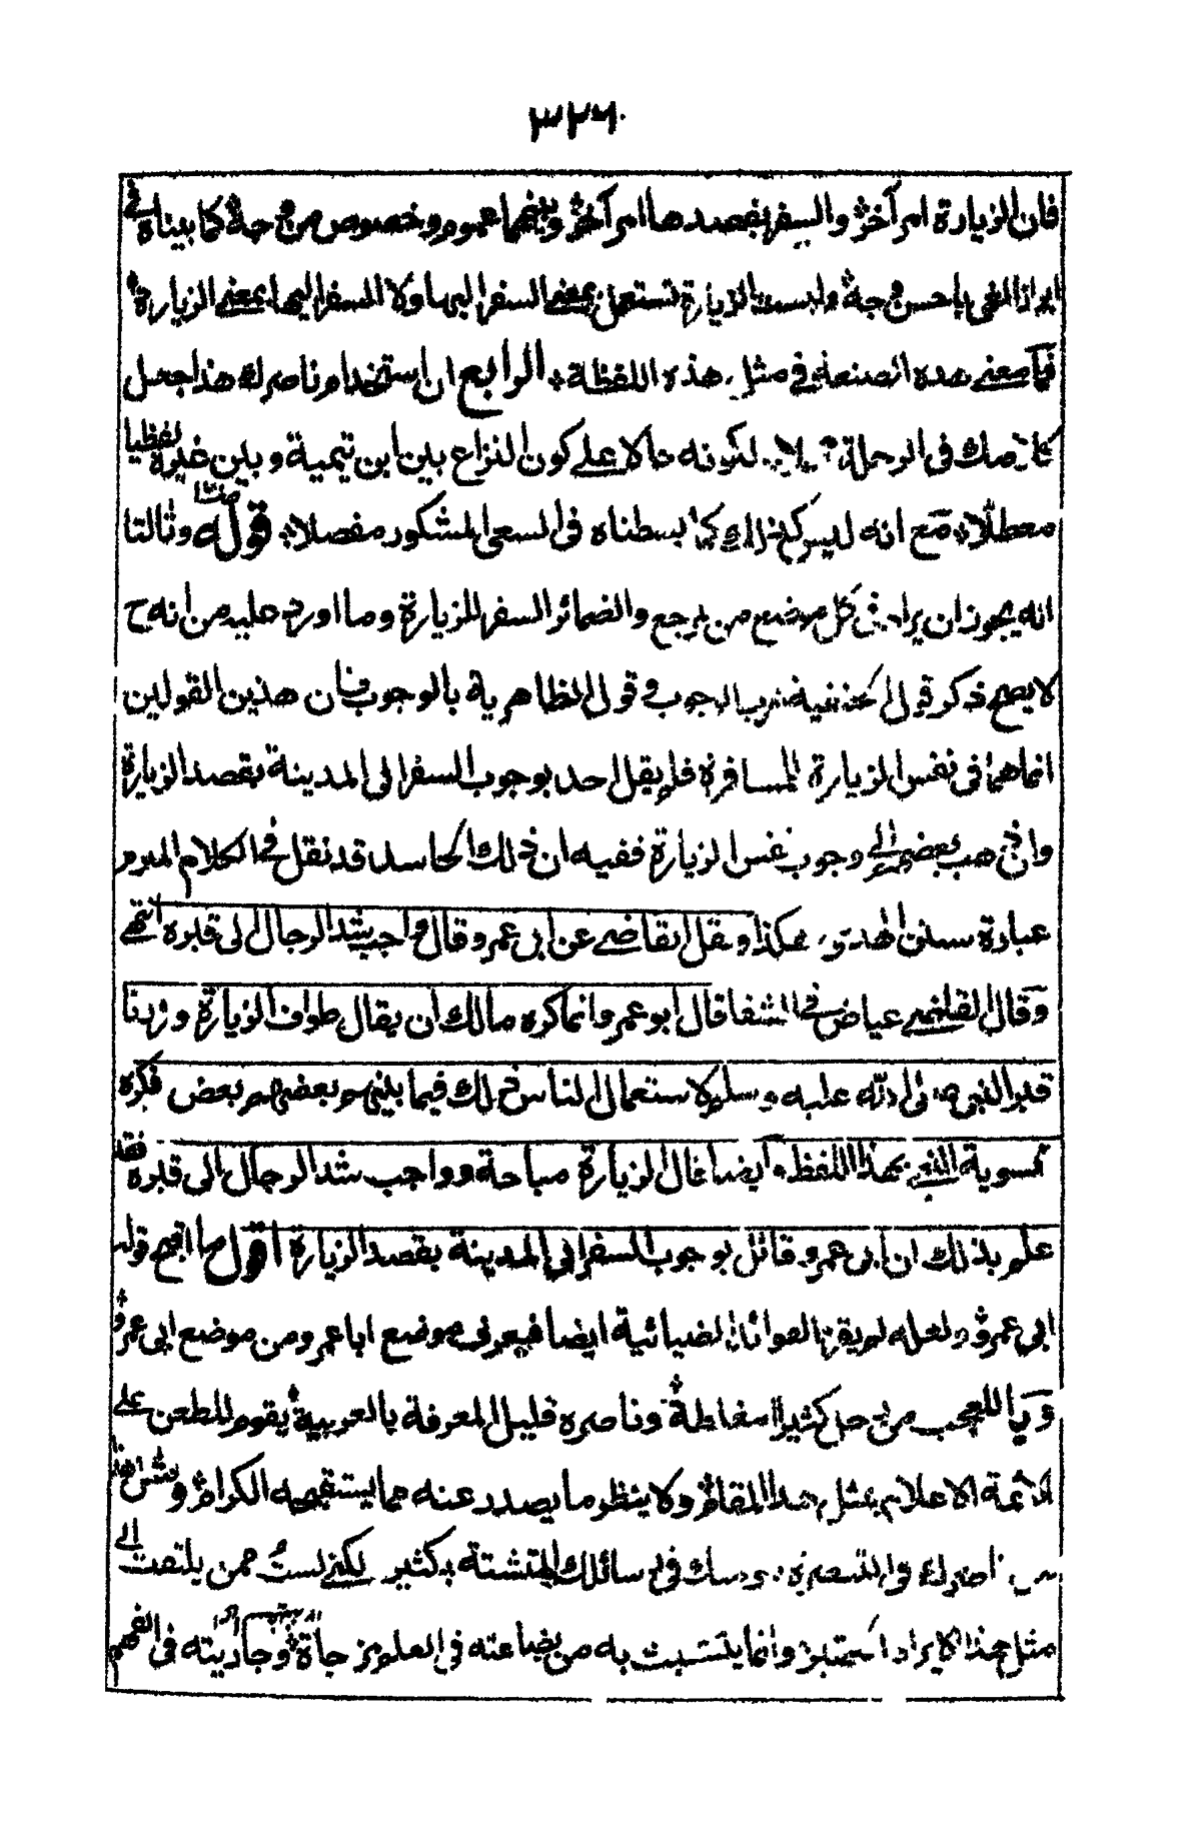 ٣٢٦
فان الزيارة امر آخر والسفر بقصدها امر آخر وبينهما عموم وخصوص من وجه كما بيناه في
ابراز الغي باحسن وجه وليست الزيارة تستعمل بمعنى السفر اليها ولا السفر اليها بمعنى الزيارة
فما معنى هذه الصنعة في مثل هذه اللفظة الرابع ان استخدام ناصرك هذا جعل
كلامك في الرحلة لكونه دالا على كون النزاع بين ابن تيمية وبين غيره لفظيا
معطلا مع انه ليس كذلك كما بسطناه في السعي المشكور مفصلا قوله وثالثا
انه يجوز ان يراد في كل موضع من المرجع والضمائر السفر للزيارة وما اورد عليه من انه ح
لا يصح ذكر قول الحنفية بقرب الوجوب وقول الظاهرية بالوجوب فان هذين القولين
انما هما في نفس الزيارة المسافرة فلم يقل احد بوجوب السفر الى المدينة بقصد الزيارة
وان ذهب بعضهم الى وجوب نفس الزيارة ففيه ان ذلك الحاسد قد نقل في الكلام المبرم
عبارة سنن الهدى هكذا ونقل القاضي عن ابي عمرو قال واجب شد الرحال الى قبره انتهى
وقال القاضي عياض في الشفا قال ابو عمر وانما كره مالك ان يقال طواف الزيارة وزرنا
قبر النبي صلى الله عليه وسلم لاستعمال الناس ذلك فيما بينهم بعضهم بعض فكره
تسوية النبي بهذا اللفظ وايضا قال الزيارة مباحة وواجب شد الرحال الى قبره فقد
علم بذلك ان ابي عمرو قائل بوجوب السفر الى المدينة بقصد الزيارة اقول ما اقبح قوله
ابي عمرو ولعله لم يقرء الفوائد الضيائية ايضا فيعرف موضع ابا عمرو من موضع ابي عمرو
ويا للعجب من رجل كثير المغالطة وناصره قليل المعرفة بالعربية يقوم للطعن على
الائمة الاعلام بمثل هذا المقام ولا ينظر ما يصدر عنه مما يستقبحه الكرام
في رسائلك المتشتتة بكثير لكني لست ممن يلتفت الى
مثل هذا الايراد وانما يتشبث به من بضاعته في العلوم مزجاة في الفهم